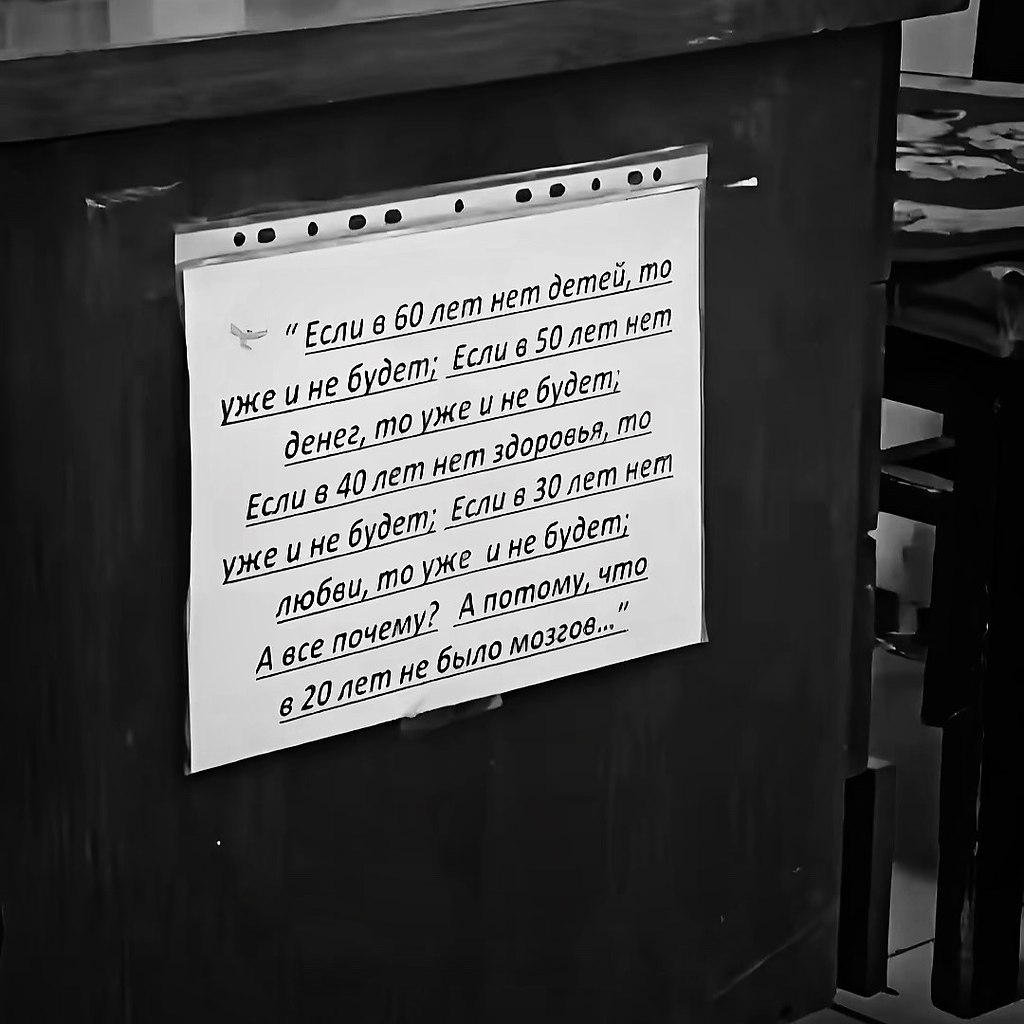 “ Если в 60 лет нет детей, то
уже и не будет; Если в 50 лет нет
денег, то уже и не будет;
Если в 40 лет нет здоровья, то
уже и не будет; Если в 30 лет нет
любви, то уже и не будет;
А все почему? А потому, что
в 20 лет не было мозгов...”